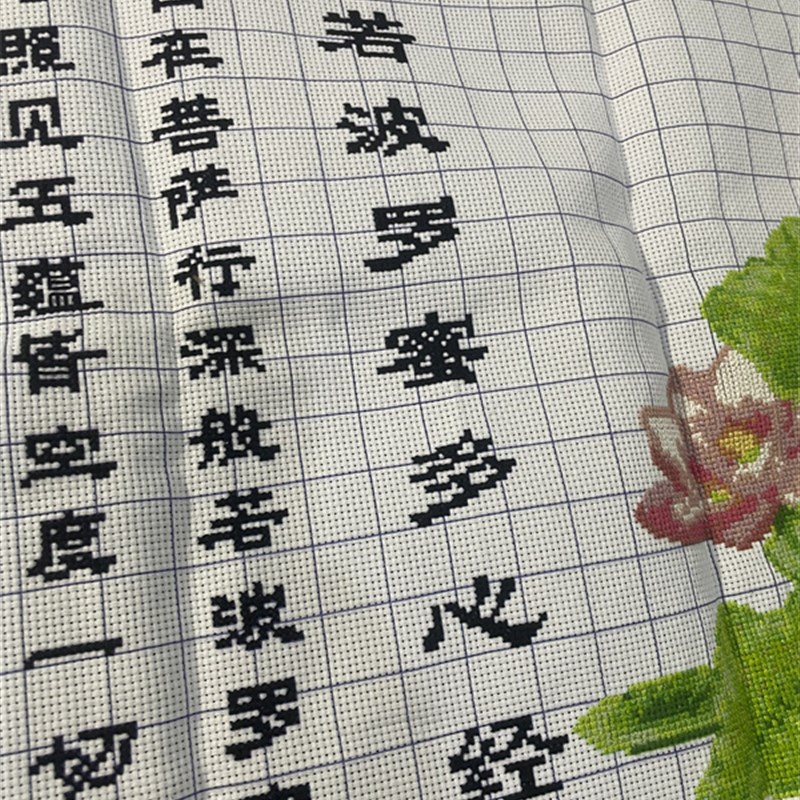 若波罗蜜多心经
在菩萨行深般若波罗
照见五蕴皆空度一切